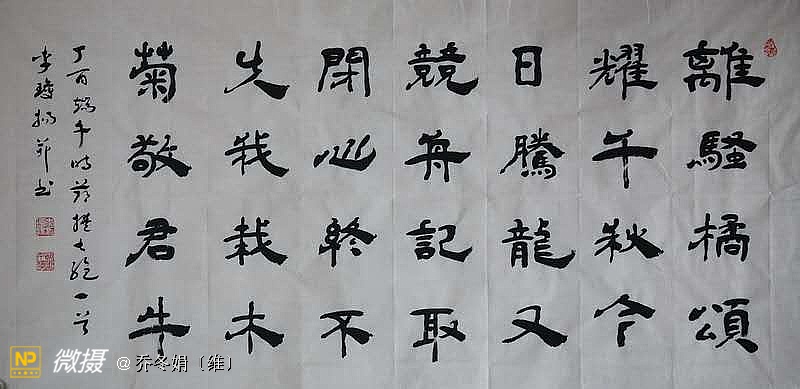 離騷橘頌
耀千秋今
日騰龍又
競舟記取
閉心終不
失我栽木
菊敬君牛
丁酉端午時節撰七絕一首
李 并书
NP 微摄 @乔冬娟〔维〕